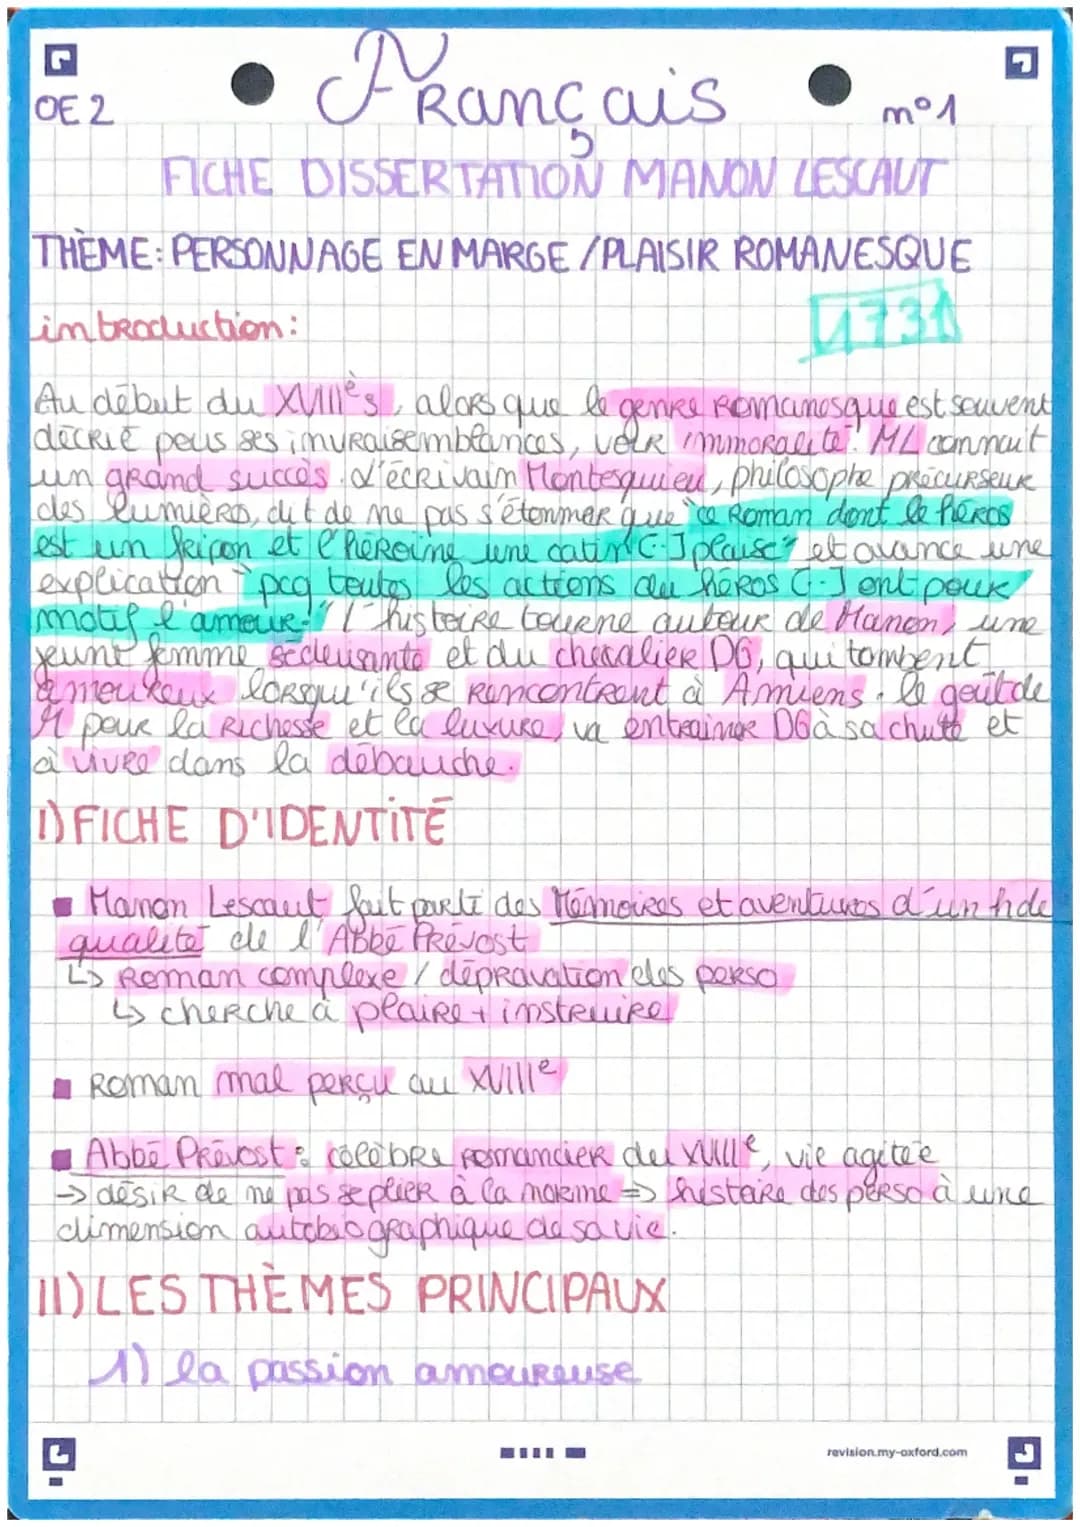 OE2
Français
n°1
FICHE DISSERTATION MANON LESCAUT
THÈME: PERSONNAGE EN MARGE / PLAISIR ROMANESQUE
introduction:
1731
Au début du XVIIIès, alors que le genre romanesque est souvent
décrié pour ses invraisemblances, voir immoralité. ML connait
un grand succès. L'écrivain Montesquieu, philosophe précurseur
des lumières, dit de ne pas s'étonner que "ce roman dont le héros
est un fripon et l'héroïne une catin [..] plaise" et avance une
explication "pcq toutes les actions du héros [..] ont pour
motif l'amour." L'histoire tourne autour de Manon, une
jeune femme séduisante et du chevalier DG, qui tombent
amoureux lorsqu'ils se rencontrent à Amiens. le goût de
M pour la richesse et la luxure, va entrainer DG à sa chute et
à vivre dans la débauche.
I) FICHE D'IDENTITÉ
▪ Manon Lescaut fait parti des Mémoires et aventures d'un h de
qualité de l'Abbé Prévost
↳ Roman complexe / dépravation des perso
↳ cherche à plaire + instruire
▪ Roman mal perçu au XVIIIe
▪ Abbé Prévost : célèbre romancier du XVIIIe, vie agitée
→ désir de ne pas se plier à la morime => histoire des perso à une
dimension autobiographique de sa vie.
II) LES THÈMES PRINCIPAUX
1) la passion amoureuse
revision.my-oxford.com